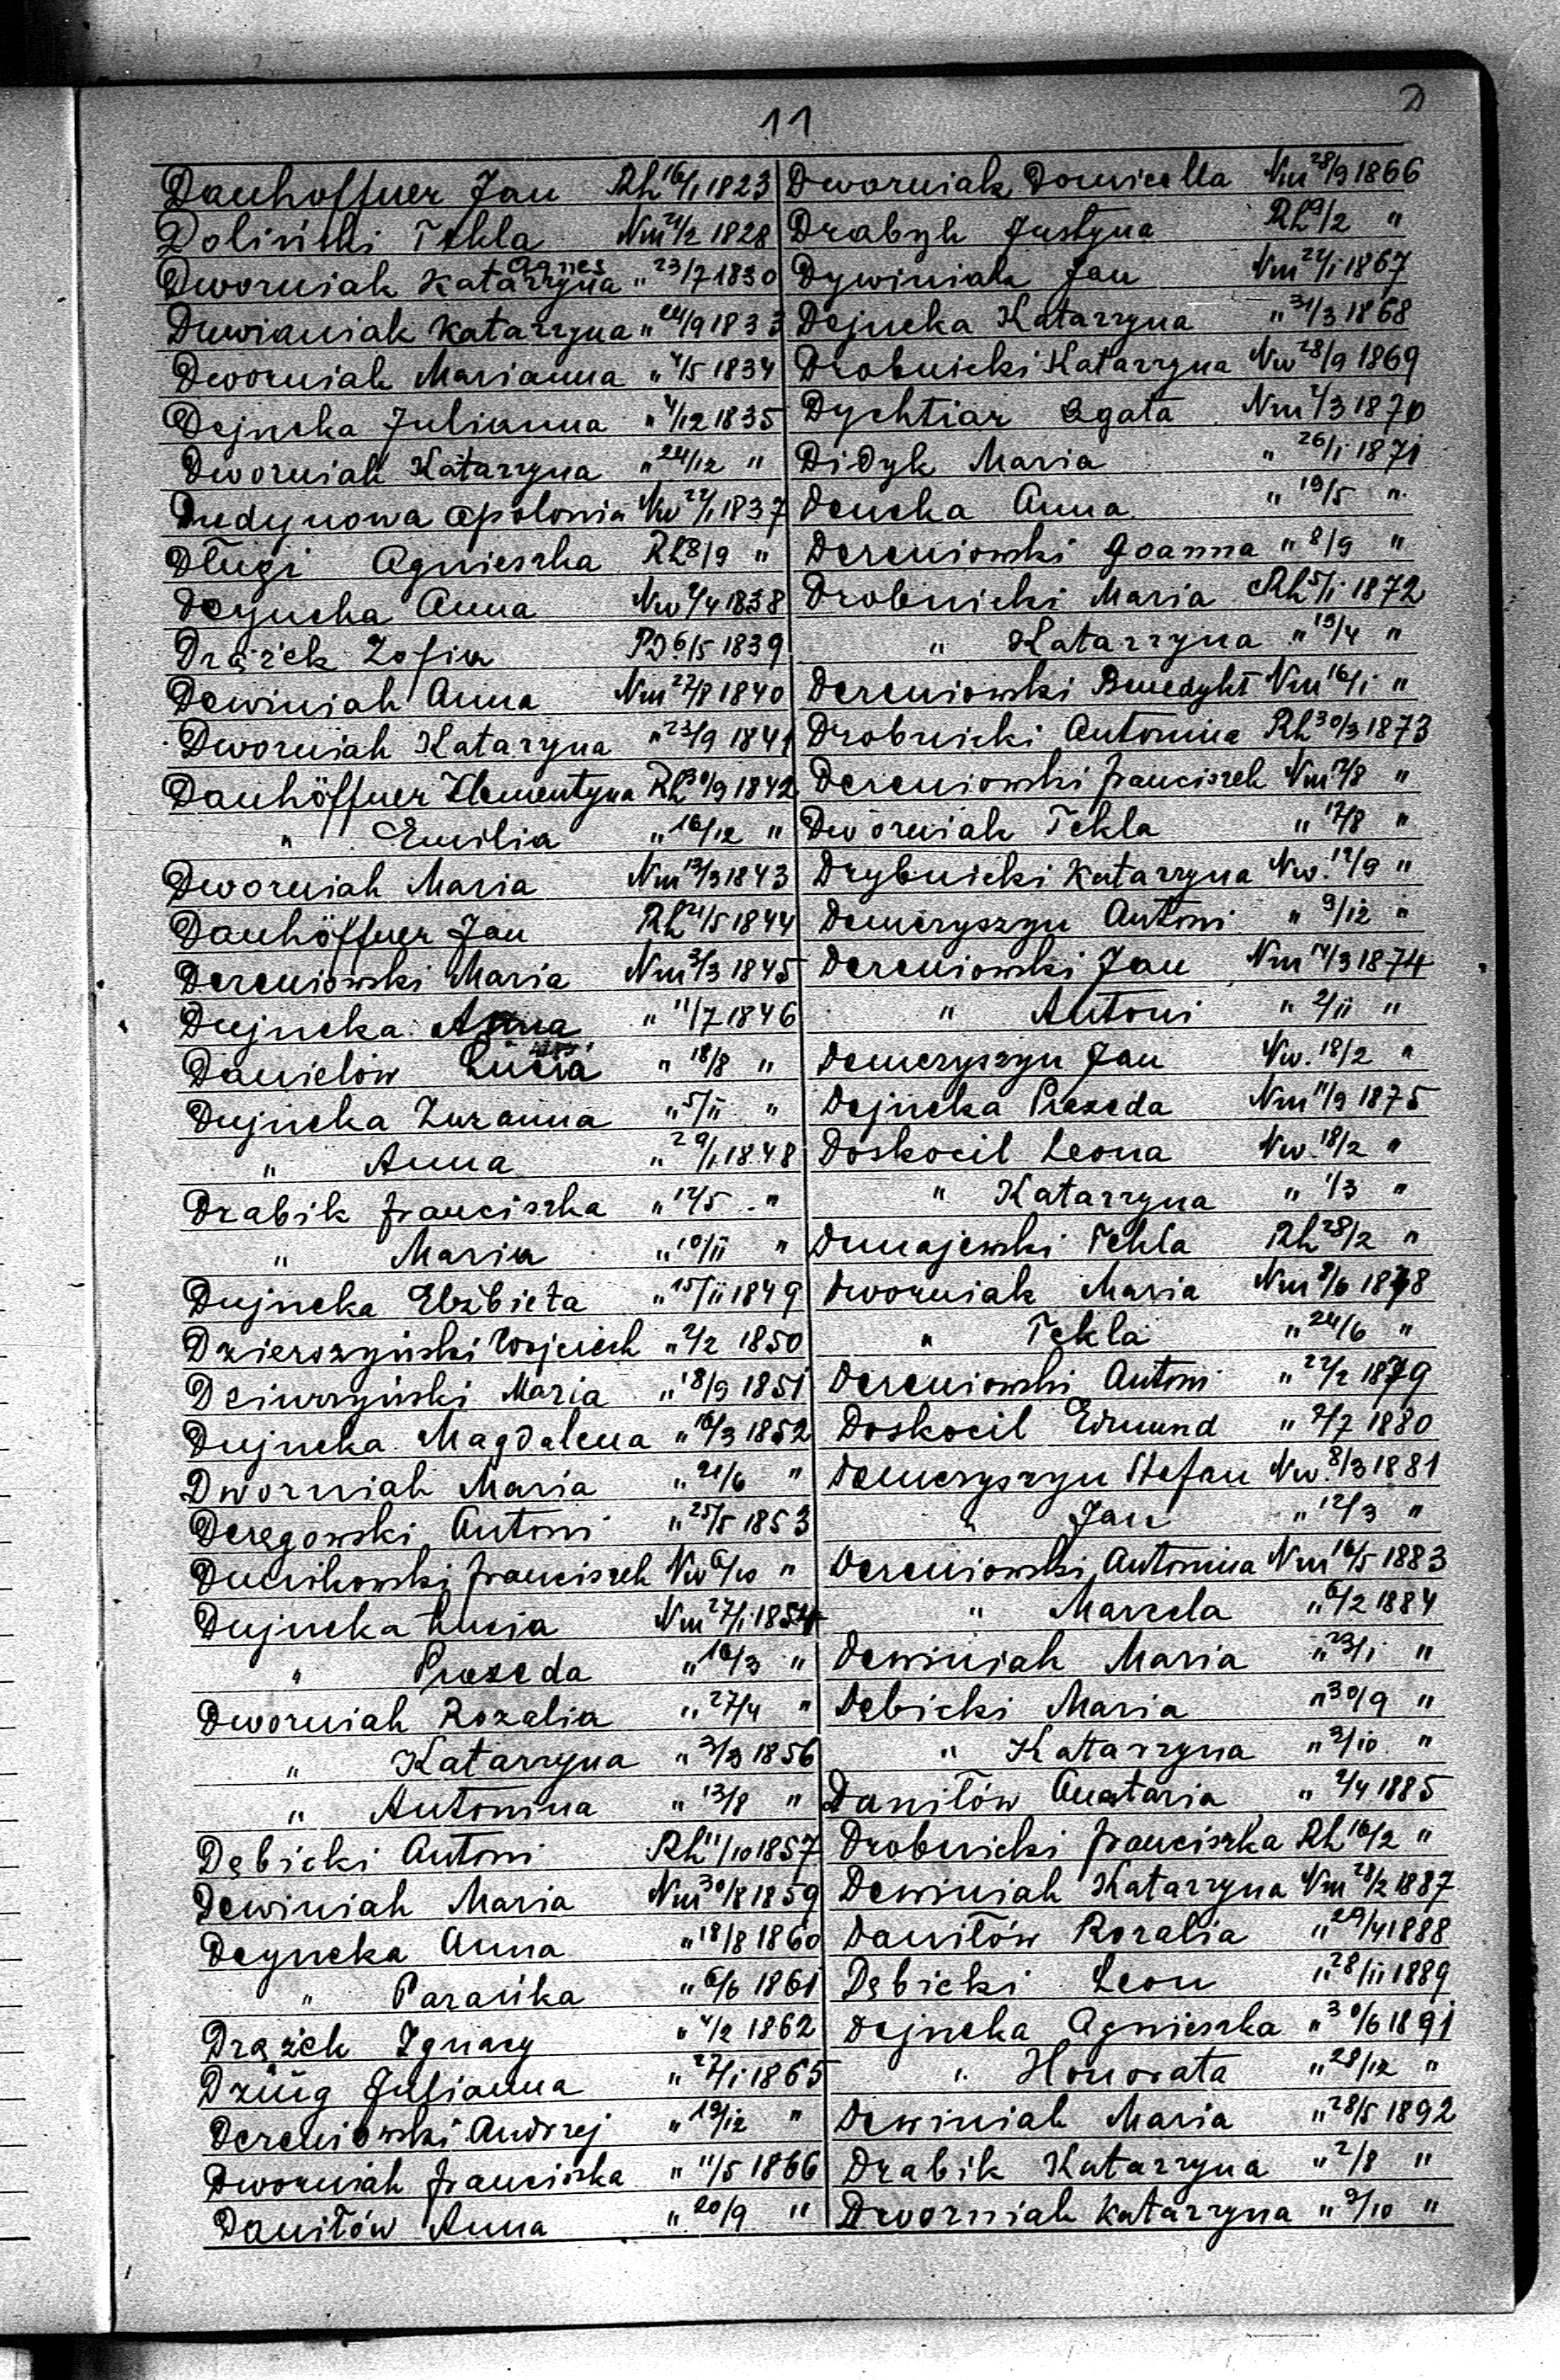 11
D
Dauhoffner Jan Rh 16/1 1823
Doliński Tekla Nm 21/2 1828
Agnes
Dworniak Katarzyna " 23/7 1830
Dewianiak Katarzyna " 24/9 1833
Dworniak Marianna " 4/5 1834
Dejneka Julianna " 4/12 1835
Dworniak Katarzyna " 24/12 "
Dudynowa Apolonia Nw 22/1 1837
Długi Agnieszka Rh 8/9 "
Deyneka Anna Nw 4/4 1838
Drążek Zofia PD 6/5 1839
Dewiniak Anna Nm 27/8 1840
Dworniak Katarzyna " 23/9 1841
Dauhöffner Klementyna Rh 30/9 1842
" Emilia " 16/12 "
Dworniak Maria Nm 13/3 1843
Dauhöffner Jan Rh 21/5 1844
Dereniowski Maria Nm 3/3 1845
Dujneka Anna " 11/7 1846
Danielów Łucia " 18/8 "
Dujneka Zuzanna " 5/11 "
" Anna " 29/1 1848
Drabik Franciszka " 12/5 "
" Maria " 10/11 "
Dujneka Elżbieta " 15/11 1849
Dzierszyński Wojciech " 2/2 1850
Dziurzyński Maria " 18/9 1851
Dujneka Magdalena " 16/3 1852
Dworniak Maria " 21/6 "
Deręgowski Antoni " 25/5 1853
Dunikowski Franciszek Nw 6/10 "
Dujneka Łucja Nm 27/1 1854
" Prexeda " 16/3 "
Dworniak Rozalia " 27/4 "
" Katarzyna " 3/3 1856
" Antonina " 13/8 "
Dębicki Antoni Rh 11/10 1857
Dewiniak Maria Nm 30/8 1859
Deyneka Anna " 18/8 1860
" Parańka " 6/6 1861
Drążek Ignacy " 4/2 1862
Dziug Julianna " 27/1 1865
Dereniowski Andrzej " 19/12 "
Dworniak Franciszka " 11/5 1866
Daniłów Anna " 20/9 "
Dworniak Domicella Nm 28/9 1866
Drabyk Justyna Rh 9/2 "
Dywiniak Jan Nm 22/1 1867
Dejneka Katarzyna " 31/3 1868
Drobnicki Katarzyna Nw 28/9 1869
Dychtiar Agata Nm 7/3 1870
Didyk Maria " 26/1 1871
Deneka Anna " 19/5 "
Dereniowski Joanna " 8/9 "
Drobnicki Maria Rh 5/1 1872
" Katarzyna " 19/4 "
Dereniowski Benedykt Nm 16/1 "
Drobnicki Antonina Rh 30/3 1873
Dereniowski Franciszek Nm 7/8 "
Dworniak Tekla " 17/8 "
Drybnicki Katarzyna Nw. 17/9 "
Demeryszyn Antoni " 9/12 "
Dereniowski Jan Nm 14/3 1874
" Antoni " 2/11 "
Demeryszyn Jan Nw. 18/2 "
Dejneka Prexeda Nm 11/9 1875
Doskocil Leona Nw. 18/2 "
" Katarzyna " 1/3 "
Dunajewski Tekla Rh 28/2 "
Dworniak Maria Nm 8/6 1878
" Tekla " 24/6 "
Dereniowski Antoni " 22/2 1879
Doskocil Edmund " 2/7 1880
Demeryszyn Stefan Nw. 8/3 1881
" Jan " 12/3 "
Dereniowski Antonina Nm 16/5 1883
" Marcela " 6/2 1884
Dewiniak Maria " 23/1 "
Dębicki Maria " 30/9 "
" Katarzyna " 3/10 "
Daniłów Anatazia " 2/4 1885
Drobnicki Franciszka Rh 16/2 "
Dewiniak Katarzyna Nm 28/2 1887
Daniłów Rozalia " 29/4 1888
Dębicki Leon " 28/11 1889
Dejneka Agnieszka " 30/6 1891
" Honorata " 28/12 "
Dewiniak Maria " 28/5 1892
Drabik Katarzyna " 2/8 "
Dworniak Katarzyna " 9/10 "